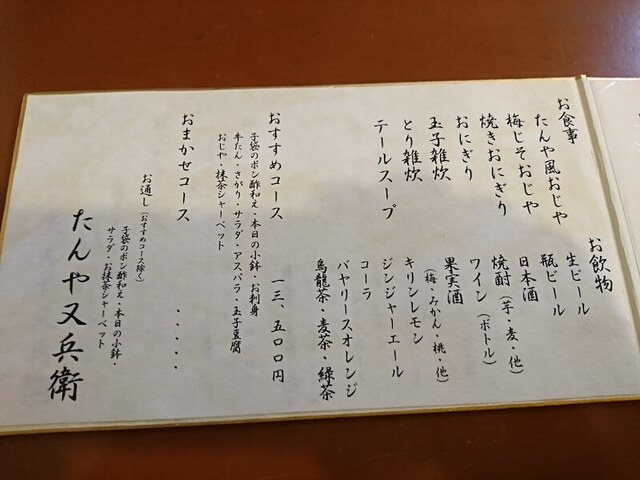 お食事
たんや風おじや
梅じそおじや
焼きおにぎり
おにぎり
玉子雑炊
とり雑炊
テールスープ
お飲物
生ビール
瓶ビール
日本酒
焼酎(芋・麦・他)
ワイン(ボトル)
果実酒
(梅・みかん・桃・他)
キリンレモン
ジンジャーエール
コーラ
バヤリースオレンジ
烏龍茶・麦茶・緑茶
おすすめコース 一三、五〇〇円
子袋のポン酢和え・本日の小鉢・お刺身
牛たん・さがり・サラダ・アスパラ・玉子豆腐
おじや・抹茶シャーベット
おまかせコース ・・・・・
お通し(おすすめコース除く)
子袋のポン酢和え・本日の小鉢・
サラダ・お抹茶シャーベット
たんや又兵衛